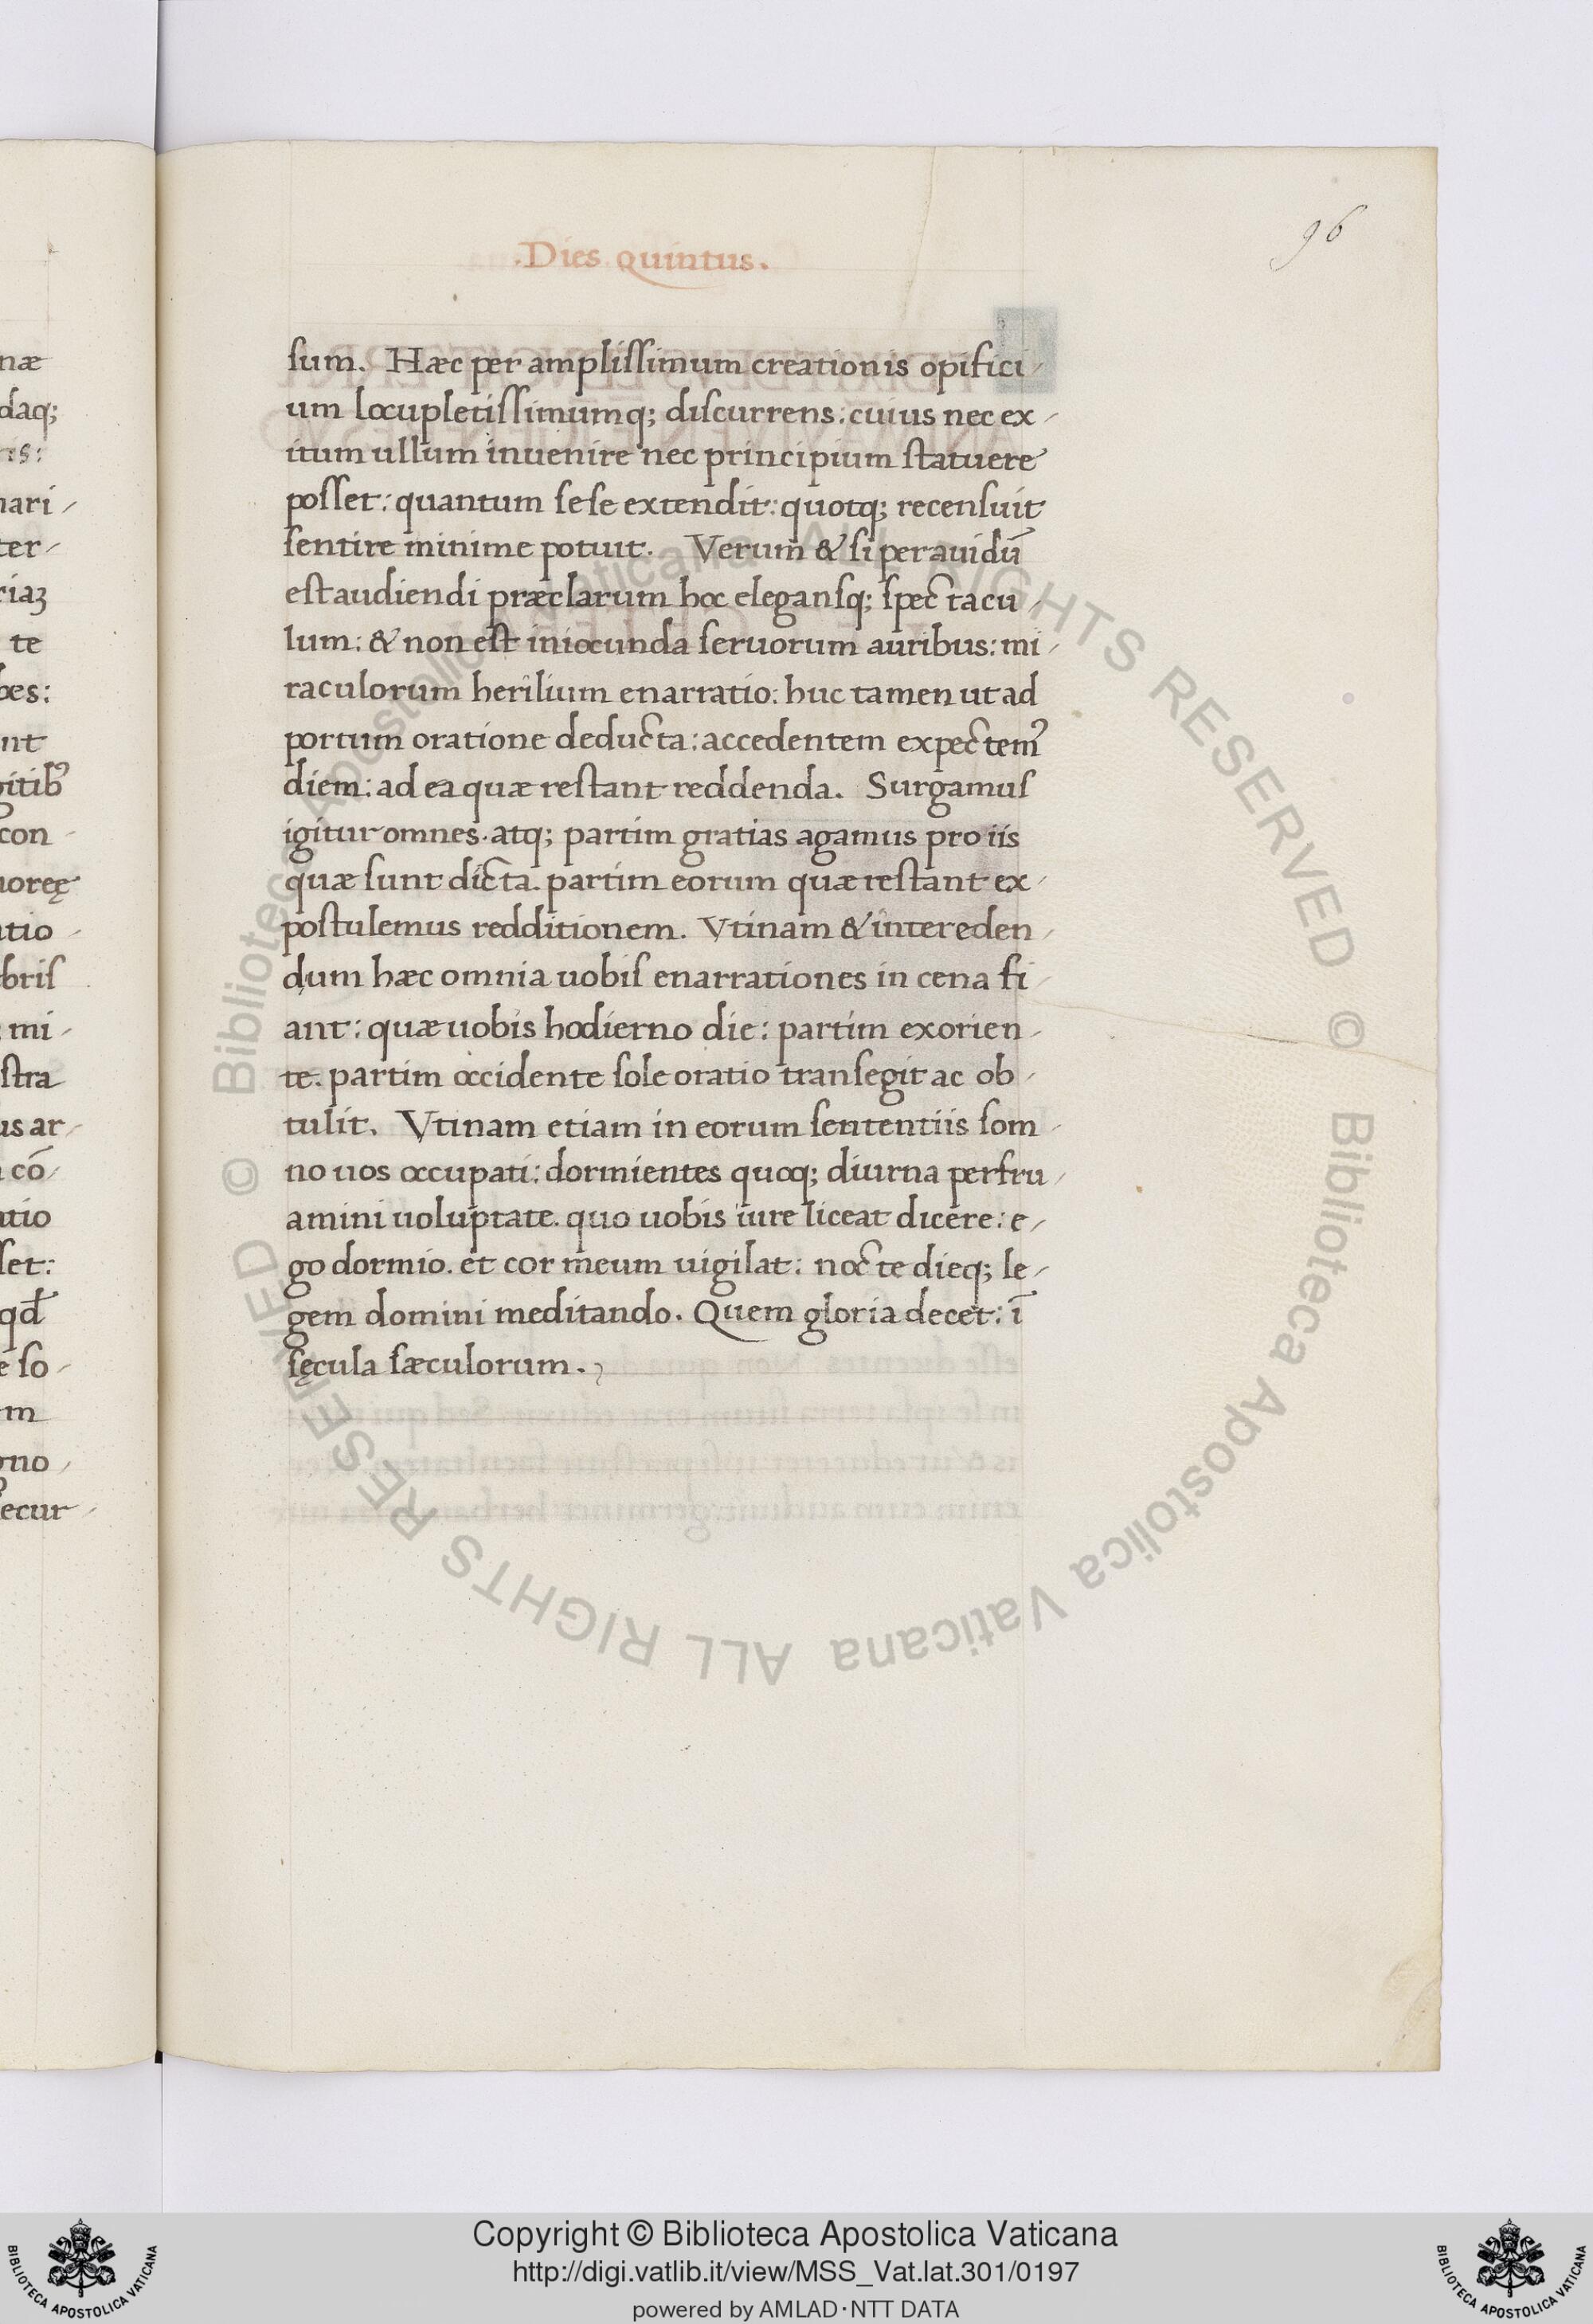 96
.Dies quintus.
sum. Hæc per amplissimum creationis opifici-
um locupletissimumq; discurrens: cuius nec ex-
itum ullum inuenire nec principium statuere
posset: quantum sese extendit: quotq; recensuit
sentire minime potuit. Verum & si per auidū
est audiendi præclarum hoc elegansq; specta cu-
lum: & non est iniocunda seruorum auribus: mi-
raculorum herilium enarratio: huc tamen ut ad
portum oratione deducta: accedentem expectemꝰ
diem: ad ea quæ restant reddenda. Surgamus
igitur omnes. atq; partim gratias agamus pro iis
quæ sunt dicta. partim eorum quæ restant ex-
postulemus redditionem. Vtinam & inter eden-
dum hæc omnia uobis enarrationes in cena fi-
ant: quæ uobis hodierno die: partim exorien-
te. partim occidente sole oratio transegit ac ob-
tulit. Vtinam etiam in eorum sententiis som-
no uos occupati: dormientes quoq; diurna perfru-
amini uoluptate. quo uobis iure liceat dicere: e-
go dormio. et cor meum uigilat: nocte dieq; le-
gem domini meditando. Quem gloria decet: ī
sęcula sæculorum.
næ
daq;
ris:
nari-
ter-
riaꝫ
te
bes:
nt
gitibꝰ
con-
uoreę
atio-
bris
mi-
stra
us ar-
cō-
atio
set:
qđ
e so-
m
gno-
ecur-
© Biblioteca Apostolica Vaticana ALL RIGHTS RESERVED © Biblioteca Apostolica Vaticana ALL RIGHTS RESERVED
Copyright © Biblioteca Apostolica Vaticana
http://digi.vatlib.it/view/MSS_Vat.lat.301/0197
powered by AMLAD·NTT DATA
BIBLIOTECA APOSTOLICA VATICANA
BIBLIOTECA APOSTOLICA VATICANA